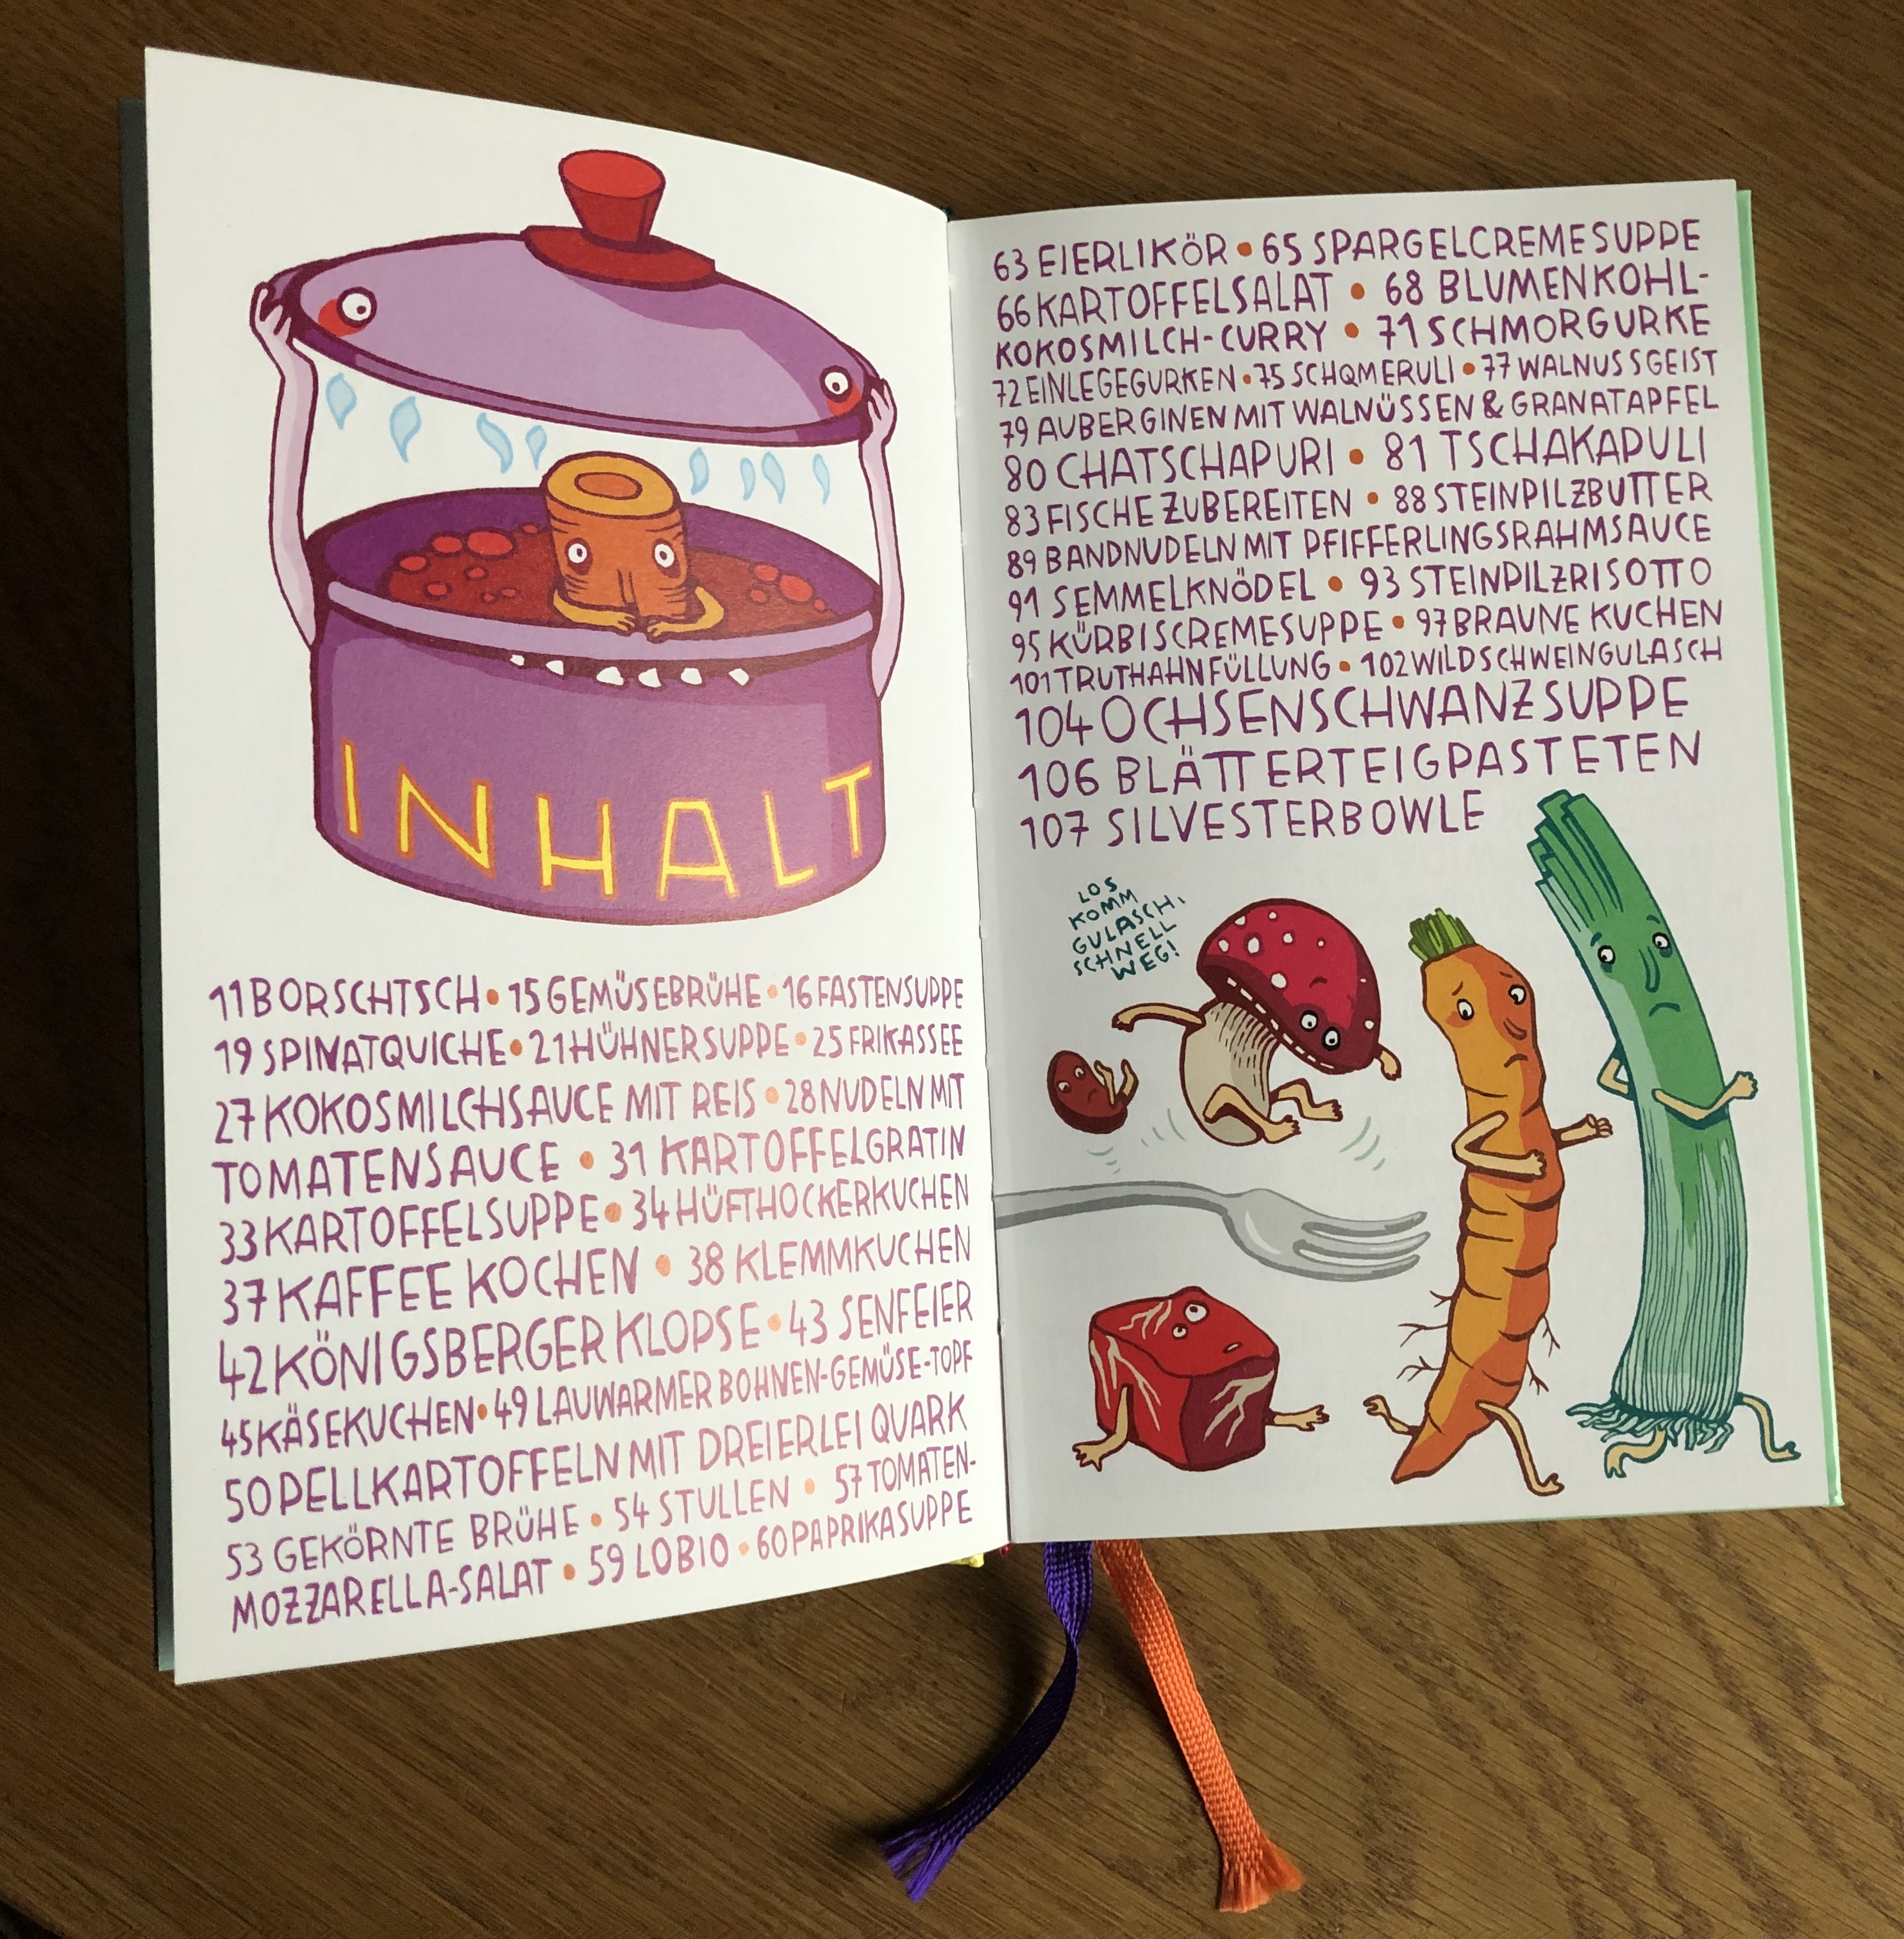 INHALT
11 BORSCHTSCH • 15 GEMÜSEBRÜHE • 16 FASTENSUPPE
19 SPINATQUICHE • 21 HÜHNERSUPPE • 25 FRIKASSEE
27 KOKOSMILCHSAUCE MIT REIS • 28 NUDELN MIT
TOMATENSAUCE • 31 KARTOFFELGRATIN
33 KARTOFFELSUPPE • 34 HÜFTHOCKERKUCHEN
37 KAFFEE KOCHEN • 38 KLEMMKUCHEN
42 KÖNIGSBERGER KLOPSE • 43 SENFEIER
45 KÄSEKUCHEN • 49 LAUWARMER BOHNEN-GEMÜSE-TOPF
50 PELLKARTOFFELN MIT DREIERLEI QUARK
53 GEKÖRNTE BRÜHE • 54 STULLEN • 57 TOMATEN-
MOZZARELLA-SALAT • 59 LOBIO • 60 PAPRIKASUPPE
63 EIERLIKÖR • 65 SPARGELCREMESUPPE
66 KARTOFFELSALAT • 68 BLUMENKOHL-
KOKOSMILCH-CURRY • 71 SCHMORGURKE
72 EINLEGEGURKEN • 75 SCHQMERULI • 77 WALNUSSGEIST
79 AUBERGINEN MIT WALNÜSSEN & GRANATAPFEL
80 CHATSCHAPURI • 81 TSCHAKAPULI
83 FISCHE ZUBEREITEN • 88 STEINPILZBUTTER
89 BANDNUDELN MIT PFIFFERLINGSRAHMSAUCE
91 SEMMELKNÖDEL • 93 STEINPILZRISOTTO
95 KÜRBISCREMESUPPE • 97 BRAUNE KUCHEN
101 TRUTHAHNFÜLLUNG • 102 WILDSCHWEINGULASCH
104 OCHSENSCHWANZSUPPE
106 BLÄTTERTEIGPASTETEN
107 SILVESTERBOWLE
LOS
KOMM
GULASCH,
SCHNELL
WEG!